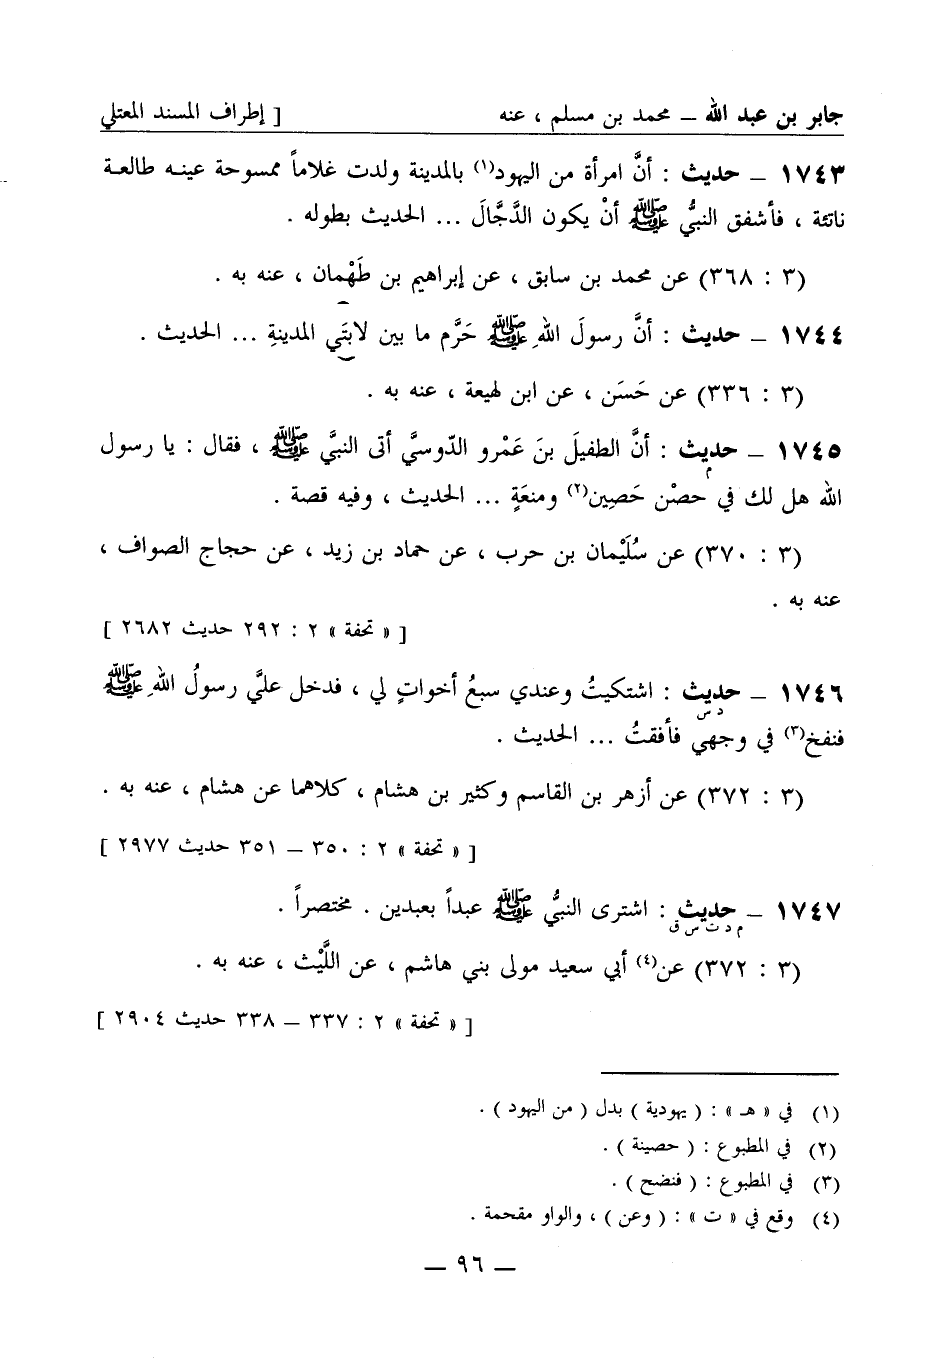 جابر بن عبد الله – محمد بن مسلم ، عنه [ إطراف المسند المعتلي
١٧٤٣ – حديث : أنَّ امرأة من اليهود(١) بالمدينة ولدت غلاماً ممسوحة عينه طالعة
ناتئة ، فأشفق النبيُّ ﷺ أنْ يكون الدَّجَّالَ ... الحديث بطوله .
(٣ : ٣٦٨) عن محمد بن سابق ، عن إبراهيم بن طَهْمان ، عنه به .
١٧٤٤ – حديث : أنَّ رسولَ اللهِ ﷺ حَرَّم ما بين لابتَي المدينةِ ... الحديث .
(٣ : ٣٣٦) عن حَسَن ، عن ابن لهيعة ، عنه به .
١٧٤٥ – حديث : أنَّ الطفيلَ بنَ عَمْرو الدّوسيَّ أتى النبيَّ ﷺ ، فقال : يا رسول
م
الله هل لك في حصْن حَصِين(٢) ومنعَةٍ ... الحديث ، وفيه قصة .
(٣ : ٣٧٠) عن سُلَيْمان بن حرب ، عن حماد بن زيد ، عن حجاج الصواف ،
عنه به .
[ « تحفة » ٢ : ٢٩٢ حديث ٢٦٨٢ ]
١٧٤٦ – حديث : اشتكيتُ وعندي سبعُ أخواتٍ لي ، فدخل عليَّ رسولُ اللهِ ﷺ
د س
فنفخ(٣) في وجهي فأفقتُ ... الحديث .
(٣ : ٣٧٢) عن أزهر بن القاسم وكثير بن هشام ، كلاهما عن هشام ، عنه به .
[ « تحفة » ٢ : ٣٥٠ – ٣٥١ حديث ٢٩٧٧ ]
١٧٤٧ – حديث : اشترى النبيُّ ﷺ عبداً بعبدين . مختصراً .
م د ت س ق
(٣ : ٣٧٢) عن(٤) أبي سعيد مولى بني هاشم ، عن اللَّيْث ، عنه به .
[ « تحفة » ٢ : ٣٣٧ – ٣٣٨ حديث ٢٩٠٤ ]
(١) في « هـ » : ( يهودية ) بدل ( من اليهود ) .
(٢) في المطبوع : ( حصينة ) .
(٣) في المطبوع : ( فنضح ) .
(٤) وقع في « ت » : ( وعن ) ، والواو مقحمة .
– ٩٦ –